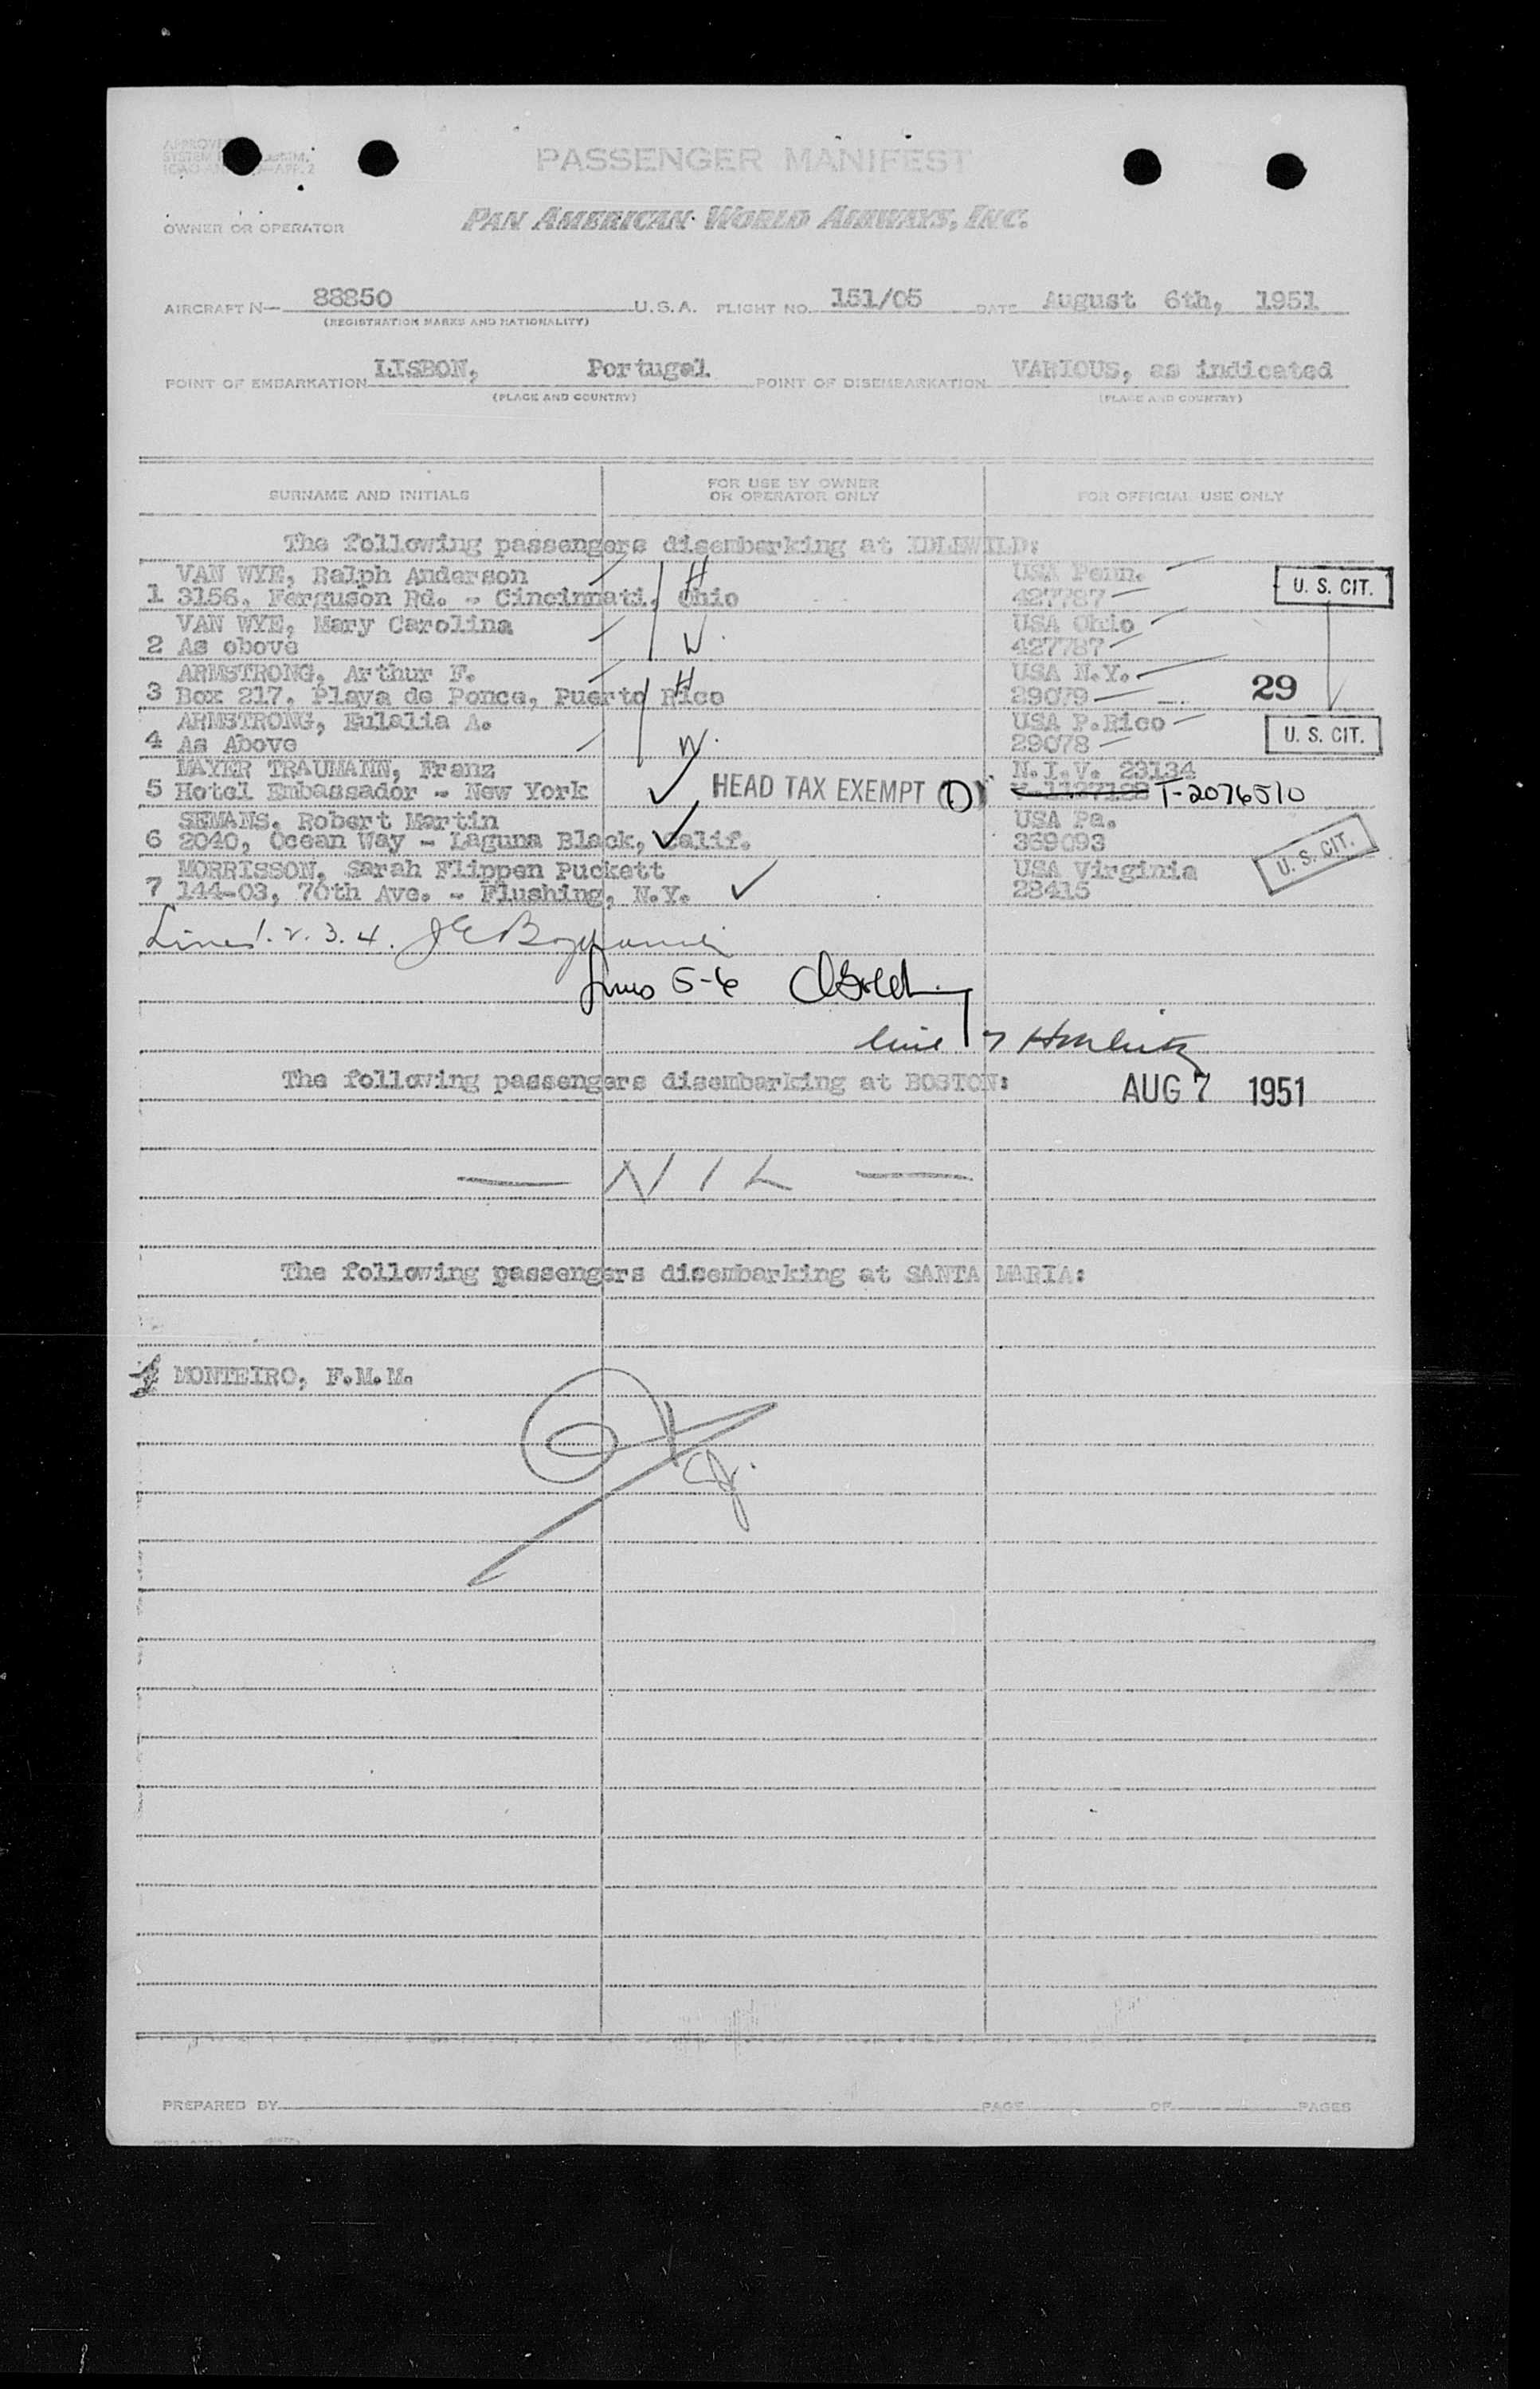 PASSENGER MANIFEST
OWNER OR OPERATOR PAN AMERICAN WORLD AIRWAYS, INC.
AIRCRAFT N— 88850 U.S.A. FLIGHT NO. 151/05 DATE August 6th, 1951
(REGISTRATION MARKS AND NATIONALITY)
POINT OF EMBARKATION LISBON, Portugal POINT OF DISEMBARKATION VARIOUS, as indicated
(PLACE AND COUNTRY) (PLACE AND COUNTRY)
SURNAME AND INITIALS FOR USE BY OWNER OR OPERATOR ONLY FOR OFFICIAL USE ONLY
The following passengers disembarking at IDLEWILD:
VAN WYE, Ralph Anderson H USA Penn.
1 3156, Ferguson Rd. - Cincinnati, Ohio 427787 U. S. CIT.
VAN WYE, Mary Carolina USA Ohio
2 As above W. 427787
ARMSTRONG, Arthur F. H USA N.Y.
3 Box 217, Playa de Ponce, Puerto Rico 29079 29
ARMSTRONG, Eulalia A. USA P.Rico
4 As Above W. 29078 U. S. CIT.
MAYER TRAUMANN, Franz N.I.V. 23134
5 Hotel Embassador - New York HEAD TAX EXEMPT T-2076510
SEMANS, Robert Martin USA Pa.
6 2040, Ocean Way - Laguna Black, Calif. 369093 U. S. CIT.
MORRISSON, Sarah Flippen Puckett USA Virginia
7 144-03, 70th Ave. - Flushing, N.Y. 28415
Lines 1. 2. 3. 4.
Lines 5-6
line 7
The following passengers disembarking at BOSTON:
AUG 7 1951
— NIL —
The following passengers disembarking at SANTA MARIA:
MONTEIRO, F.M.M.
PREPARED BY PAGE OF PAGES